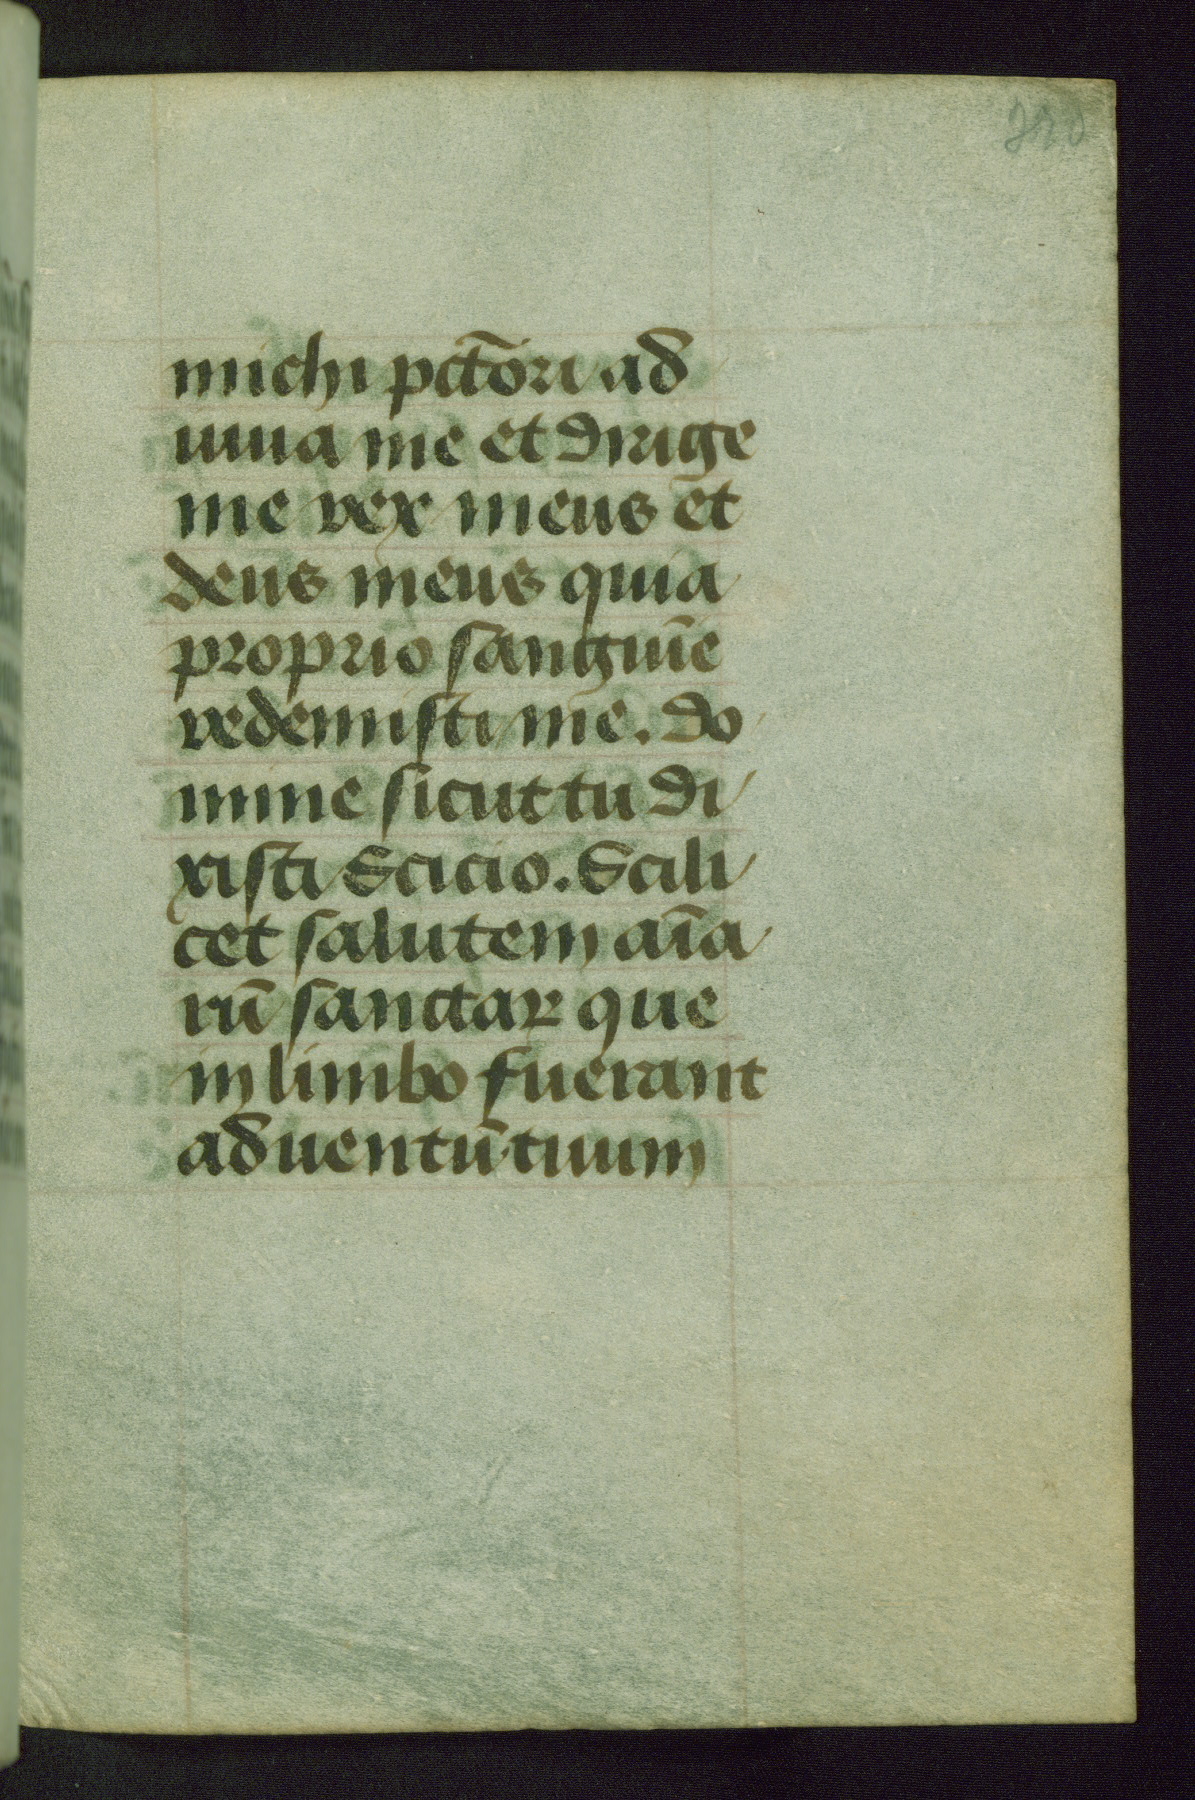 michi pctōri ad
iuua me et dirige
me rex meus et
deus meus quia
proprio sanguīe
redemisti me. do
mine sicut tu di
xisti Scicio. Scili
cet salutem aīa
rū sanctaꝝ que
in limbo fuerant
aduentū tuum